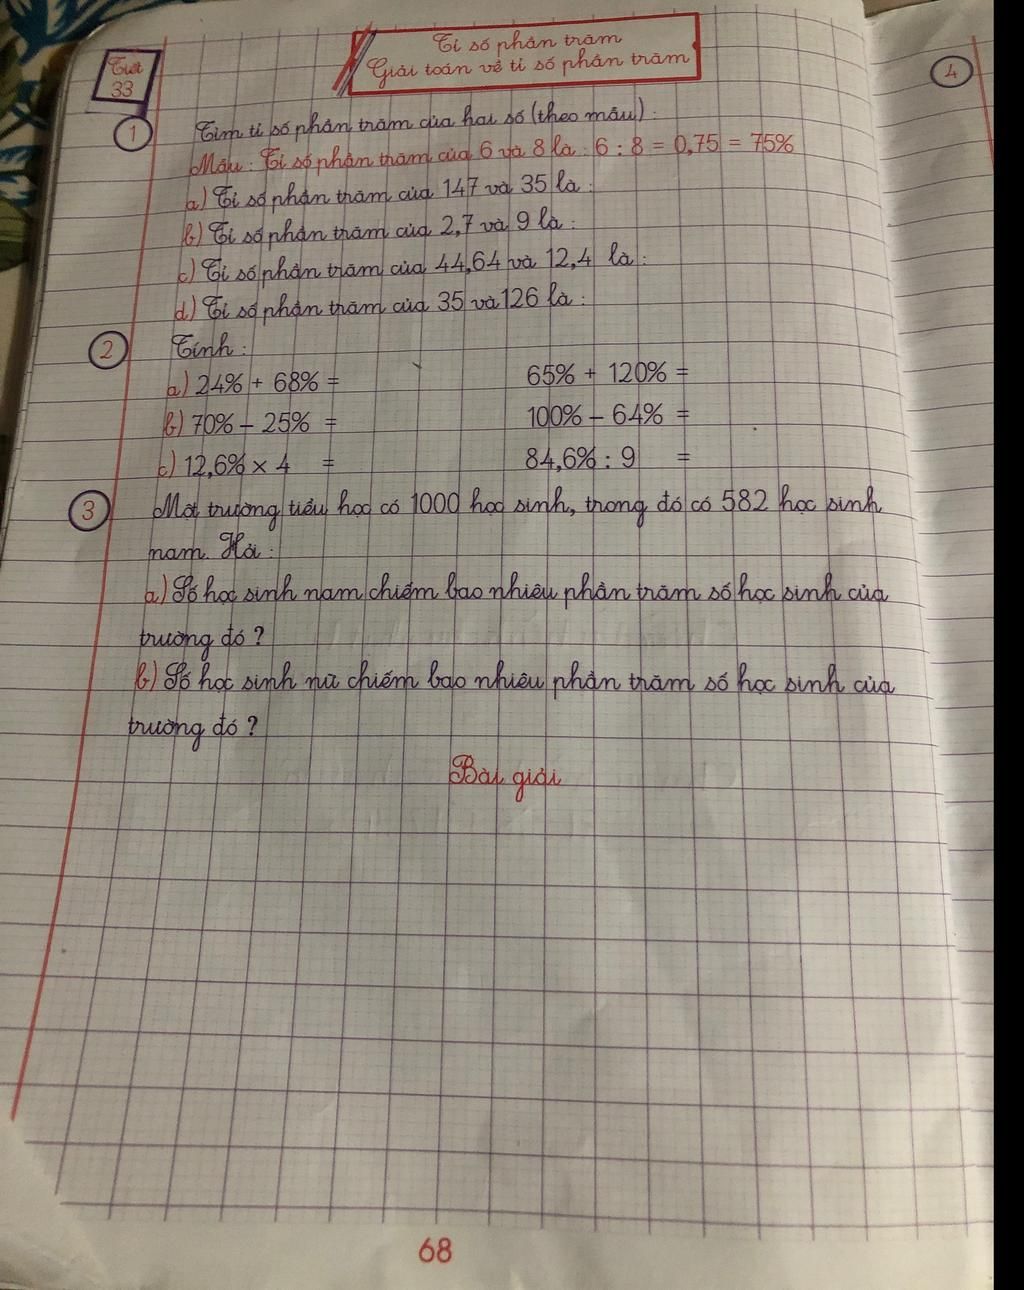 Tỉ số phần trăm
Giải toán về tỉ số phần trăm
Tiết
33
4
1
Tìm tỉ số phần trăm của hai số (theo mẫu) :
Mẫu : Tỉ số phần trăm của 6 và 8 là : 6 : 8 = 0,75 = 75%
a) Tỉ số phần trăm của 147 và 35 là :
b) Tỉ số phần trăm của 2,7 và 9 là :
c) Tỉ số phần trăm của 44,64 và 12,4 là :
d) Tỉ số phần trăm của 35 và 126 là :
2
Tính :
a) 24% + 68% = 65% + 120% =
b) 70% – 25% = 100% – 64% =
c) 12,6% × 4 = 84,6% : 9 =
3
Một trường tiểu học có 1000 học sinh, trong đó có 582 học sinh
nam. Hỏi :
a) Số học sinh nam chiếm bao nhiêu phần trăm số học sinh của
trường đó ?
b) Số học sinh nữ chiếm bao nhiêu phần trăm số học sinh của
trường đó ?
Bài giải
68